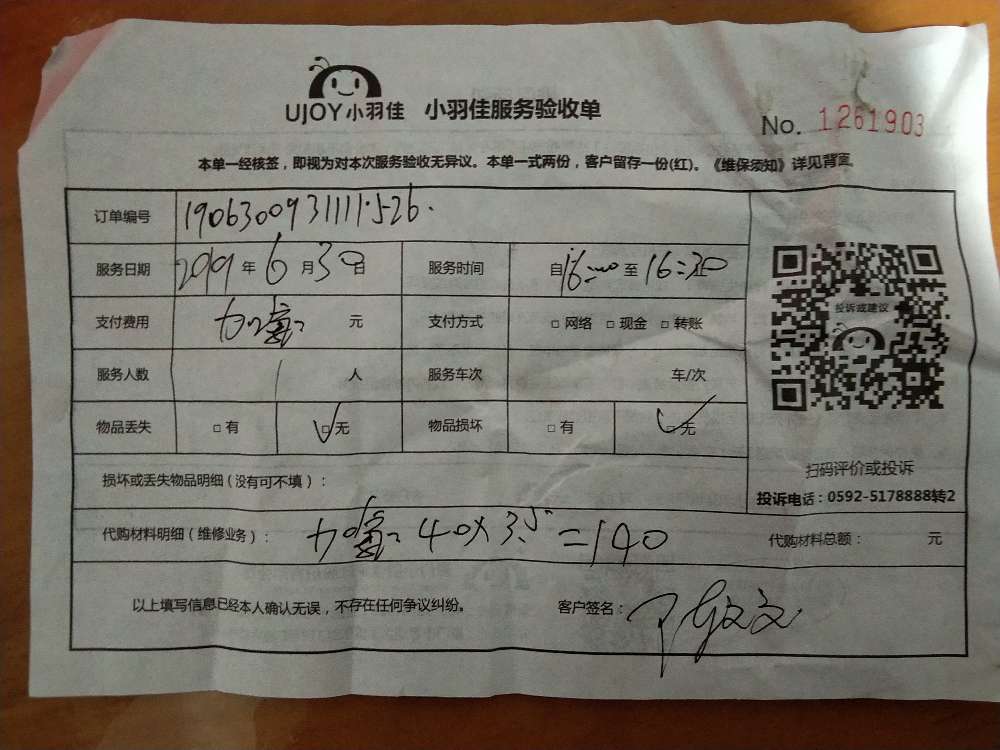 UJOY小羽佳 小羽佳服务验收单
No. 1261903
本单一经核签，即视为对本次服务验收无异议。本单一式两份，客户留存一份(红)。《维保须知》详见背面
订单编号 190630093111115-26.
服务日期 2019年6月30日 服务时间 自16:00至16:30
支付费用 加氟 元 支付方式 □网络 □现金 □转账
服务人数 1 人 服务车次 车/次
物品丢失 □有 ☑无 物品损坏 □有 ☑无
投诉或建议
扫码评价或投诉
投诉电话：0592-5178888转2
损坏或丢失物品明细（没有可不填）：
代购材料明细（维修业务）： 加氟 40X3.5=140 代购材料总额： 元
以上填写信息已经本人确认无误，不存在任何争议纠纷。 客户签名：